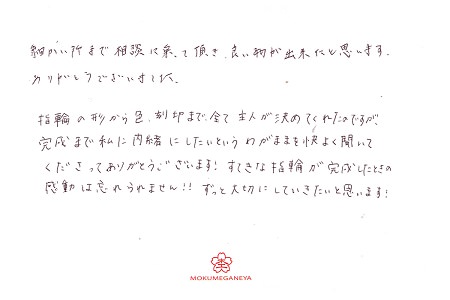 細かい所まで相談に乗って頂き、良い物が出来たと思います。
ありがとうございました。
指輪の形から色、刻印まで、全て主人が決めてくれたのですが、
完成まで私に内緒にしたいというわがままを快よく聞いて
くださってありがとうございます！すてきな指輪が完成したときの
感動は忘れられません！！ずっと大切にしていきたいと思います！
MOKUMEGANEYA